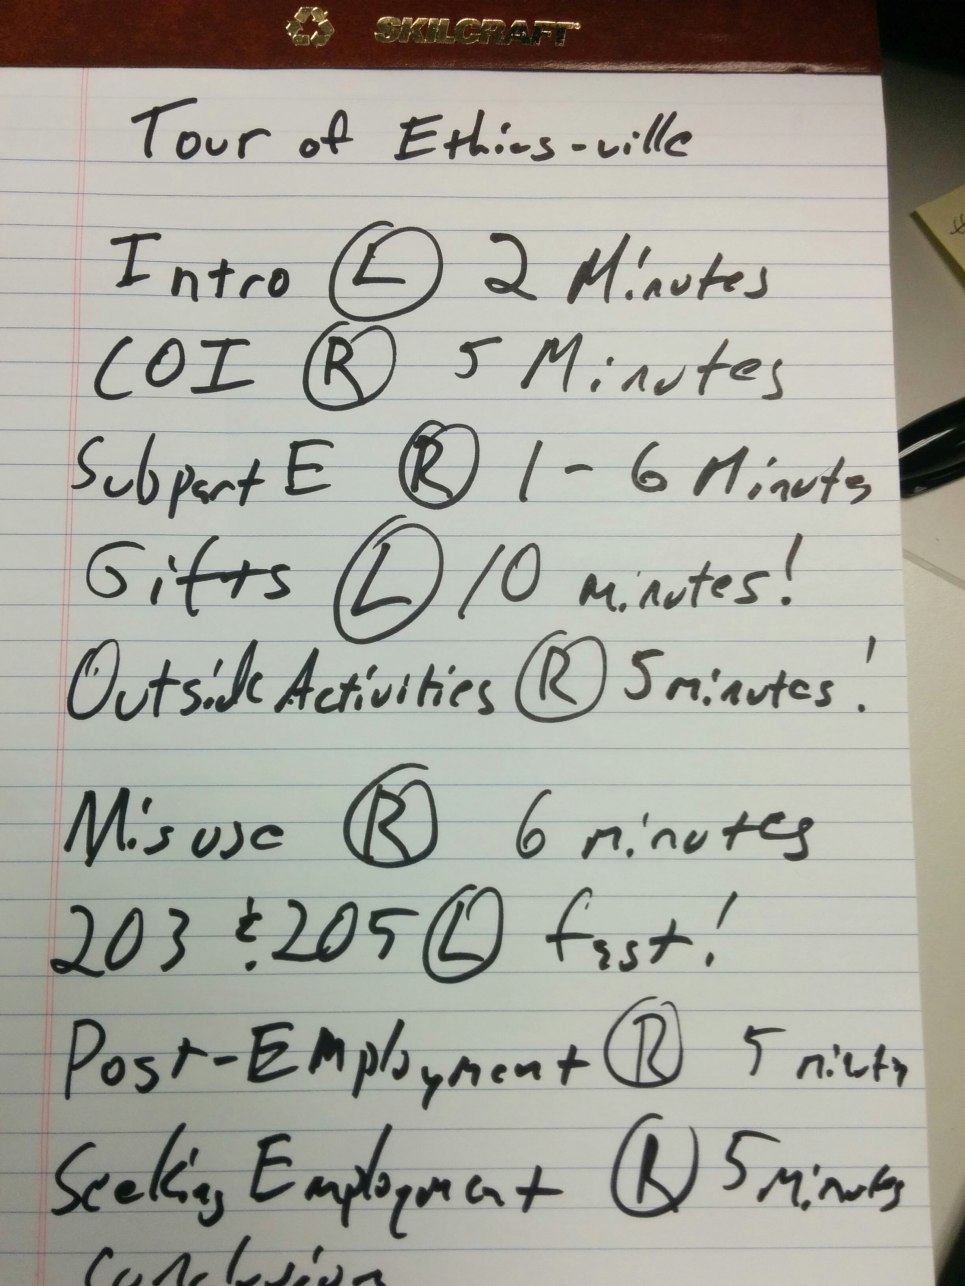 SKILCRAFT
Tour of Ethics-ville
Intro L 2 Minutes
COI R 5 Minutes
Subpart E R 1-6 Minutes
Gifts L 10 minutes!
Outside Activities R 5 minutes!
Misuse R 6 minutes
203 & 205 L fast!
Post-Employment R 5 minutes
Seeking Employment R 5 Minutes
Conclusion